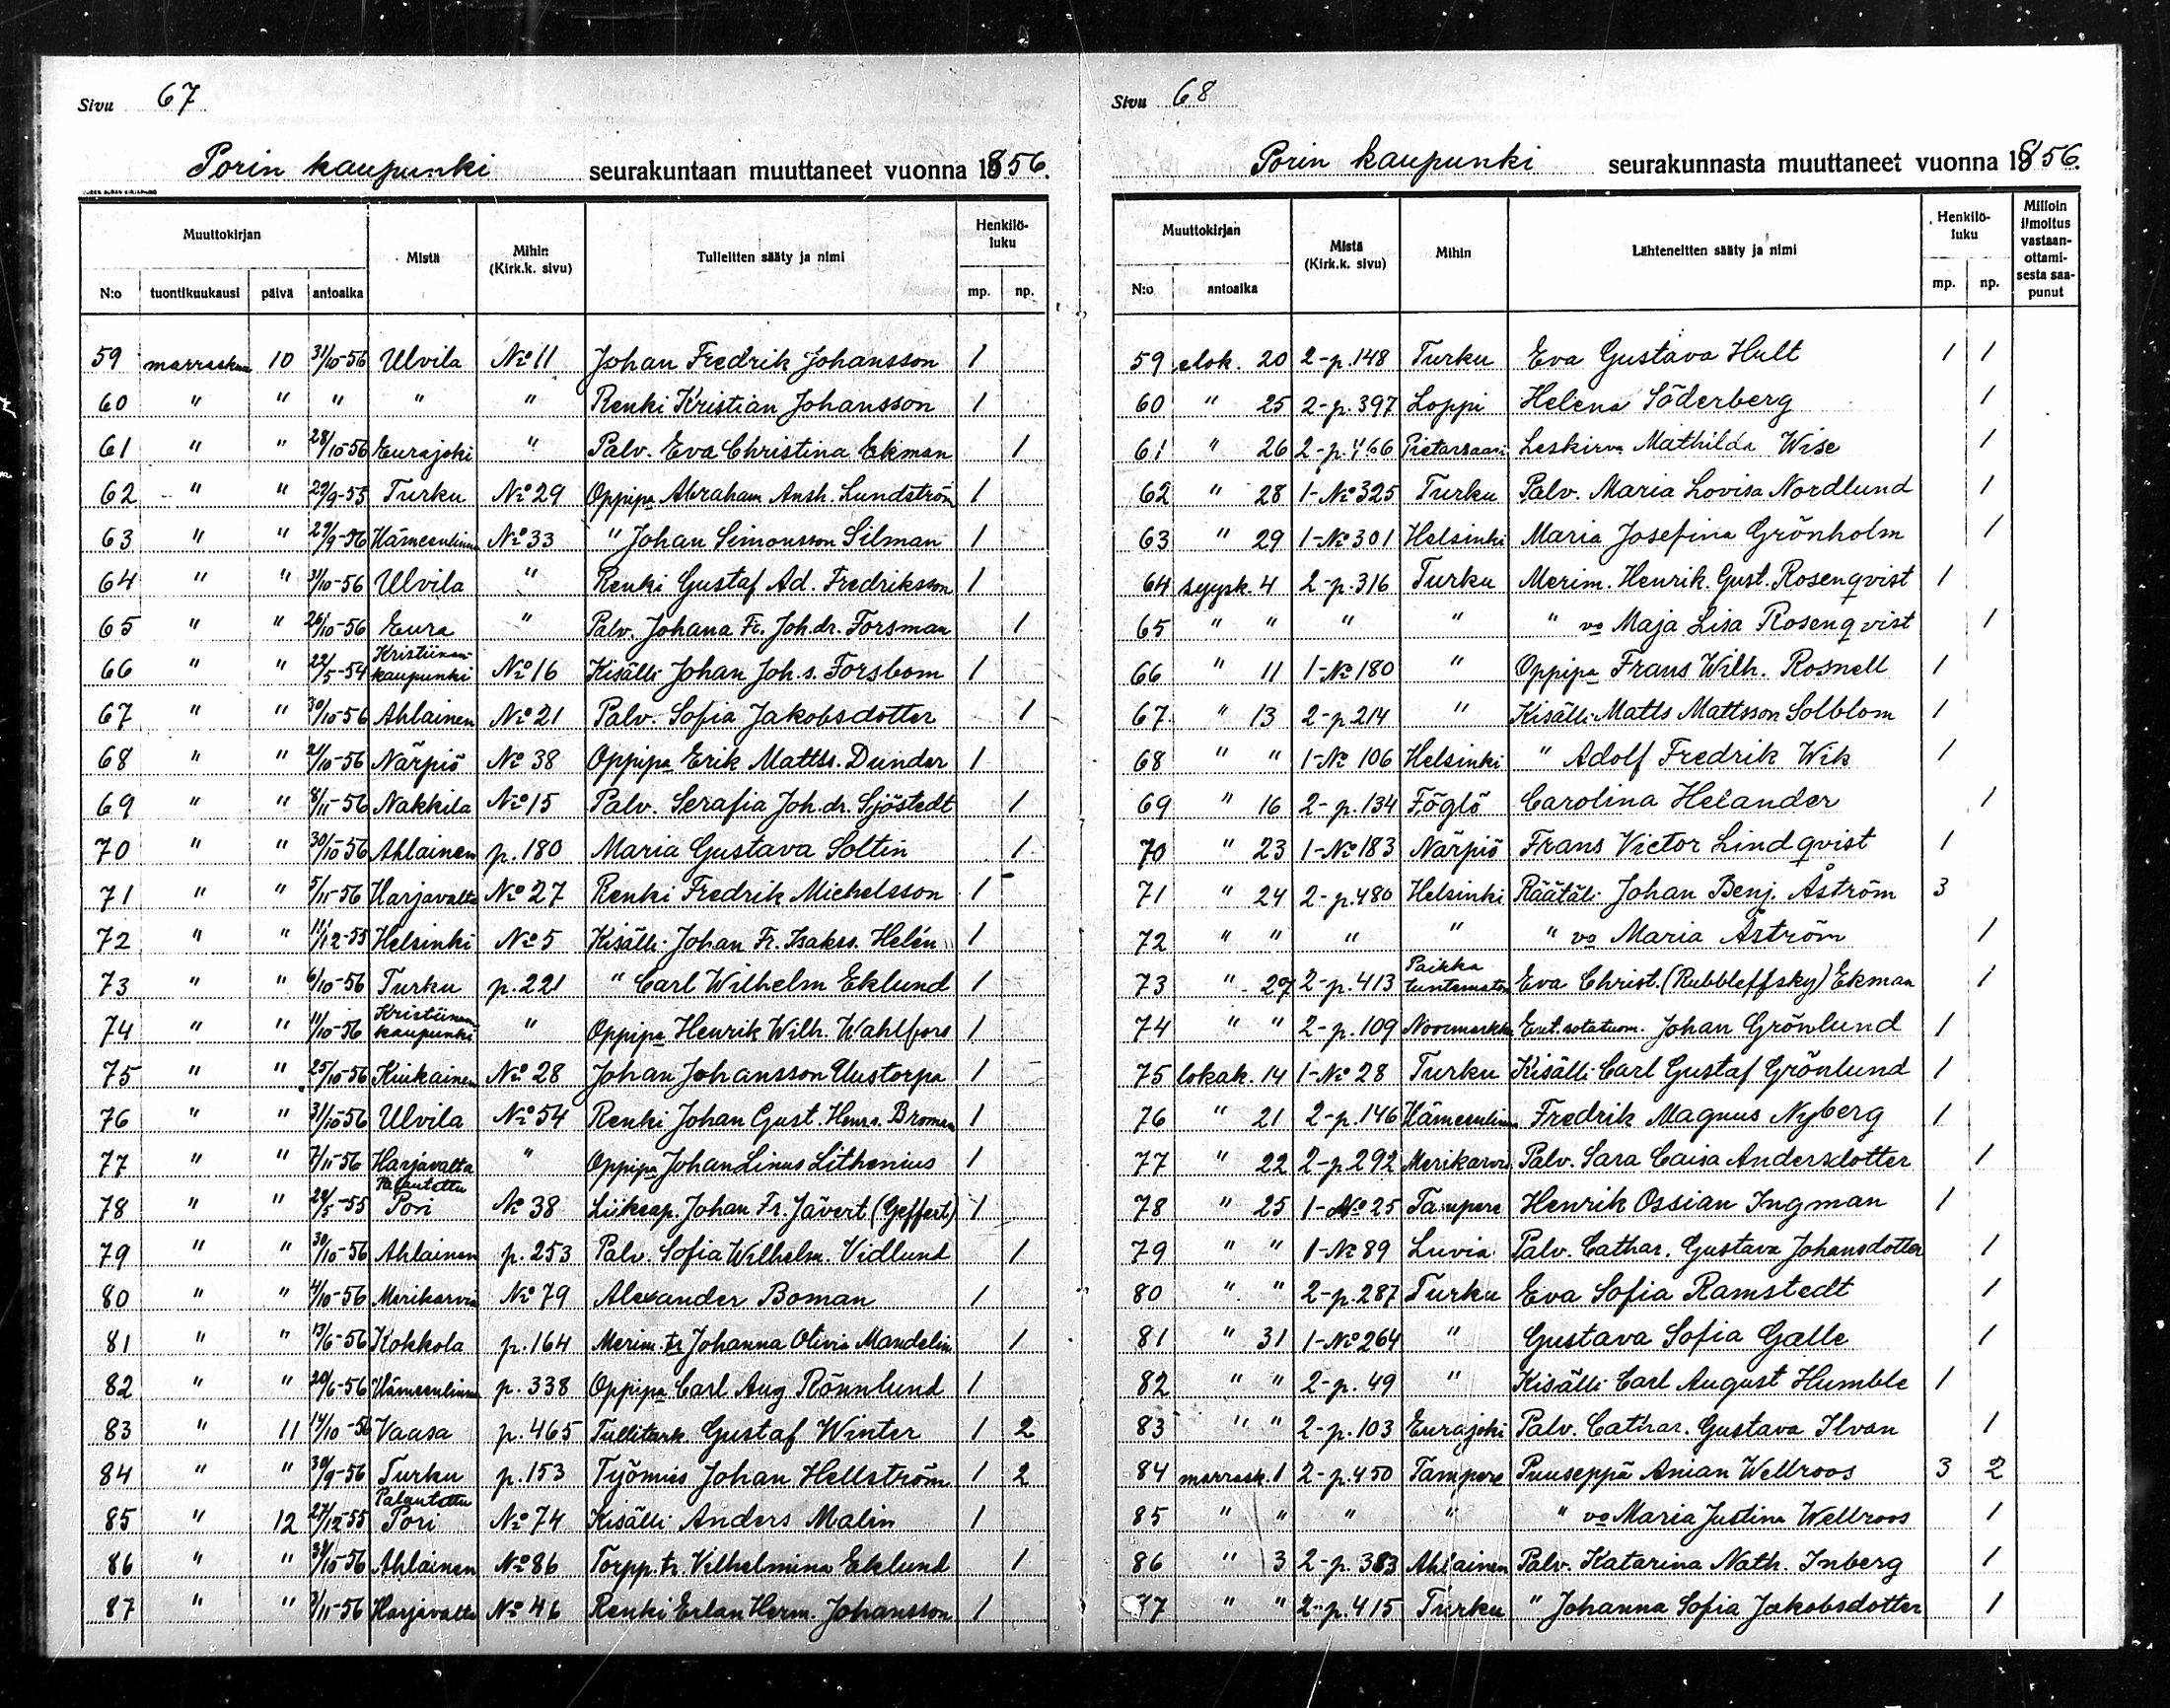 Sivu 67
Porin kaupunki seurakuntaan muuttaneet vuonna 1856.
Muuttokirjan Mistä Mihin (Kirk.k. sivu) Tulleitten sääty ja nimi Henkilö-luku
N:o tuontikuukausi päivä antoaika mp. np.
59 marraskuu 10 31/10-56 Ulvila No 11 Johan Fredrik Johansson 1
60 " " " " " Renki Kristian Johansson 1
61 " " 28/10-56 Eurajoki " Palv. Eva Christina Ekman 1
62 " " 29/9-55 Turku No 29 Oppipa Abraham Ansh. Lundström 1
63 " " 29/9-56 Hämeenlinna No 33 " Johan Simonsson Silman 1
64 " " 31/10-56 Ulvila " Renki Gustaf Ad. Fredriksson 1
65 " " 26/10-56 Eura " Palv. Johana Fr. Joh.dr. Forsman 1
66 " " 22/5-54 Kristiinankaupunki No 16 Kisälli Johan Joh.s. Forsbom 1
67 " " 30/10-56 Ahlainen No 21 Palv. Sofia Jakobsdotter 1
68 " " 21/10-56 Närpiö No 38 Oppipa Erik Mattss. Dunder 1
69 " " 8/11-56 Nakkila No 15 Palv. Serafia Joh.dr. Sjöstedt 1
70 " " 30/10-56 Ahlainen p. 180 Maria Gustava Soltin 1
71 " " 5/11-56 Harjavalta No 27 Renki Fredrik Michelsson 1
72 " " 11/12-55 Helsinki No 5 Kisälli Johan Fr. Isakss. Helén 1
73 " " 6/10-56 Turku p. 221 " Carl Wilhelm Eklund 1
74 " " 11/10-56 Kristiinankaupunki " Oppipa Henrik Wilh. Wahlfors 1
75 " " 25/10-56 Kiukainen No 28 Johan Johansson Uustorpa 1
76 " " 31/10-56 Ulvila No 54 Renki Johan Gust. Henrs. Broman 1
77 " " 7/11-56 Harjavalta " Oppipa Johan Linus Lithenius 1
78 " " 22/5-55 Palautettu Pori No 38 Liikeap. Johan Fr. Jävert (Geffert) 1
79 " " 30/10-56 Ahlainen p. 253 Palv. Sofia Wilhelm. Vidlund 1
80 " " 4/10-56 Merikarvia No 79 Alexander Boman 1
81 " " 13/6-56 Kokkola p. 164 Merim. tr Johanna Olivia Mandelin 1
82 " " 20/6-56 Hämeenlinna p. 338 Oppipa Carl Aug Rönnlund 1
83 " 11 14/10-56 Vaasa p. 465 Tullitark. Gustaf Winter 1 2
84 " " 30/9-56 Turku p. 153 Työmies Johan Hellström 1 2
85 " 12 27/12-55 Palautettu Pori No 74 Kisälli Anders Malin 1
86 " " 31/10-56 Ahlainen No 86 Torpp. tr. Vilhelmina Eklund 1
87 " " 3/11-56 Harjavalta No 46 Renki Erlan Herm. Johansson 1
Sivu 68
Porin kaupunki seurakunnasta muuttaneet vuonna 1856.
Muuttokirjan Mistä (Kirk.k. sivu) Mihin Lähteneitten sääty ja nimi Henkilö-luku Milloin ilmoitus vastaan-ottami-sesta saa-punut
N:o antoaika mp. np.
59 elok. 20 2-p.148 Turku Eva Gustava Hult 1 1
60 " 25 2-p.397 Loppi Helena Söderberg 1
61 " 26 2-p.466 Pietarsaari Leskirva Mathilda Wise 1
62 " 28 1-No 325 Turku Palv. Maria Lovisa Nordlund 1
63 " 29 1-No 301 Helsinki Maria Josefina Grönholm 1
64 syysk. 4 2-p.316 Turku Merim. Henrik Gust. Rosenqvist 1
65 " " " " " vo Maja Lisa Rosenqvist 1
66 " 11 1-No 180 " Oppipa Frans Wilh. Rosnell 1
67 " 13 2-p.214 " Kisälli Matts Mattsson Solblom 1
68 " " 1-No 106 Helsinki " Adolf Fredrik Wik 1
69 " 16 2-p.134 Föglö Carolina Helander 1
70 " 23 1-No 183 Närpiö Frans Victor Lindqvist 1
71 " 24 2-p.480 Helsinki Räätäli Johan Benj. Åström 3
72 " " " " " vo Maria Åström 1
73 " 27 2-p.413 Paikka tuntematon Eva Christ. (Rubbleffsky) Ekman 1
74 " " 2-p.109 Noormarkku Ent. sotatuom. Johan Grönlund 1
75 lokak. 14 1-No 28 Turku Kisälli Carl Gustaf Grönlund 1
76 " 21 2-p.146 Hämeenlinna Fredrik Magnus Nyberg 1
77 " 22 2-p.292 Merikarvia Palv. Sara Caisa Andersdotter 1
78 " 25 1-No 25 Tampere Henrik Ossian Ingman 1
79 " " 1-No 89 Luvia Palv. Cathar. Gustava Johansdotter 1
80 " " 2-p.287 Turku Eva Sofia Ramstedt 1
81 " 31 1-No 264 " Gustava Sofia Galle 1
82 " " 2-p. 49 " Kisälli Carl August Humble 1
83 " " 2-p.103 Eurajoki Palv. Cathar. Gustava Ilvan 1
84 marrask. 1 2-p.450 Tampere Puuseppä Anian Wellroos 3 2
85 " " " " " vo Maria Justina Wellroos 1
86 " 3 2-p.383 Ahlainen Palv. Katarina Nath. Inberg 1
87 " " 2-p.415 Turku " Johanna Sofia Jakobsdotter 1